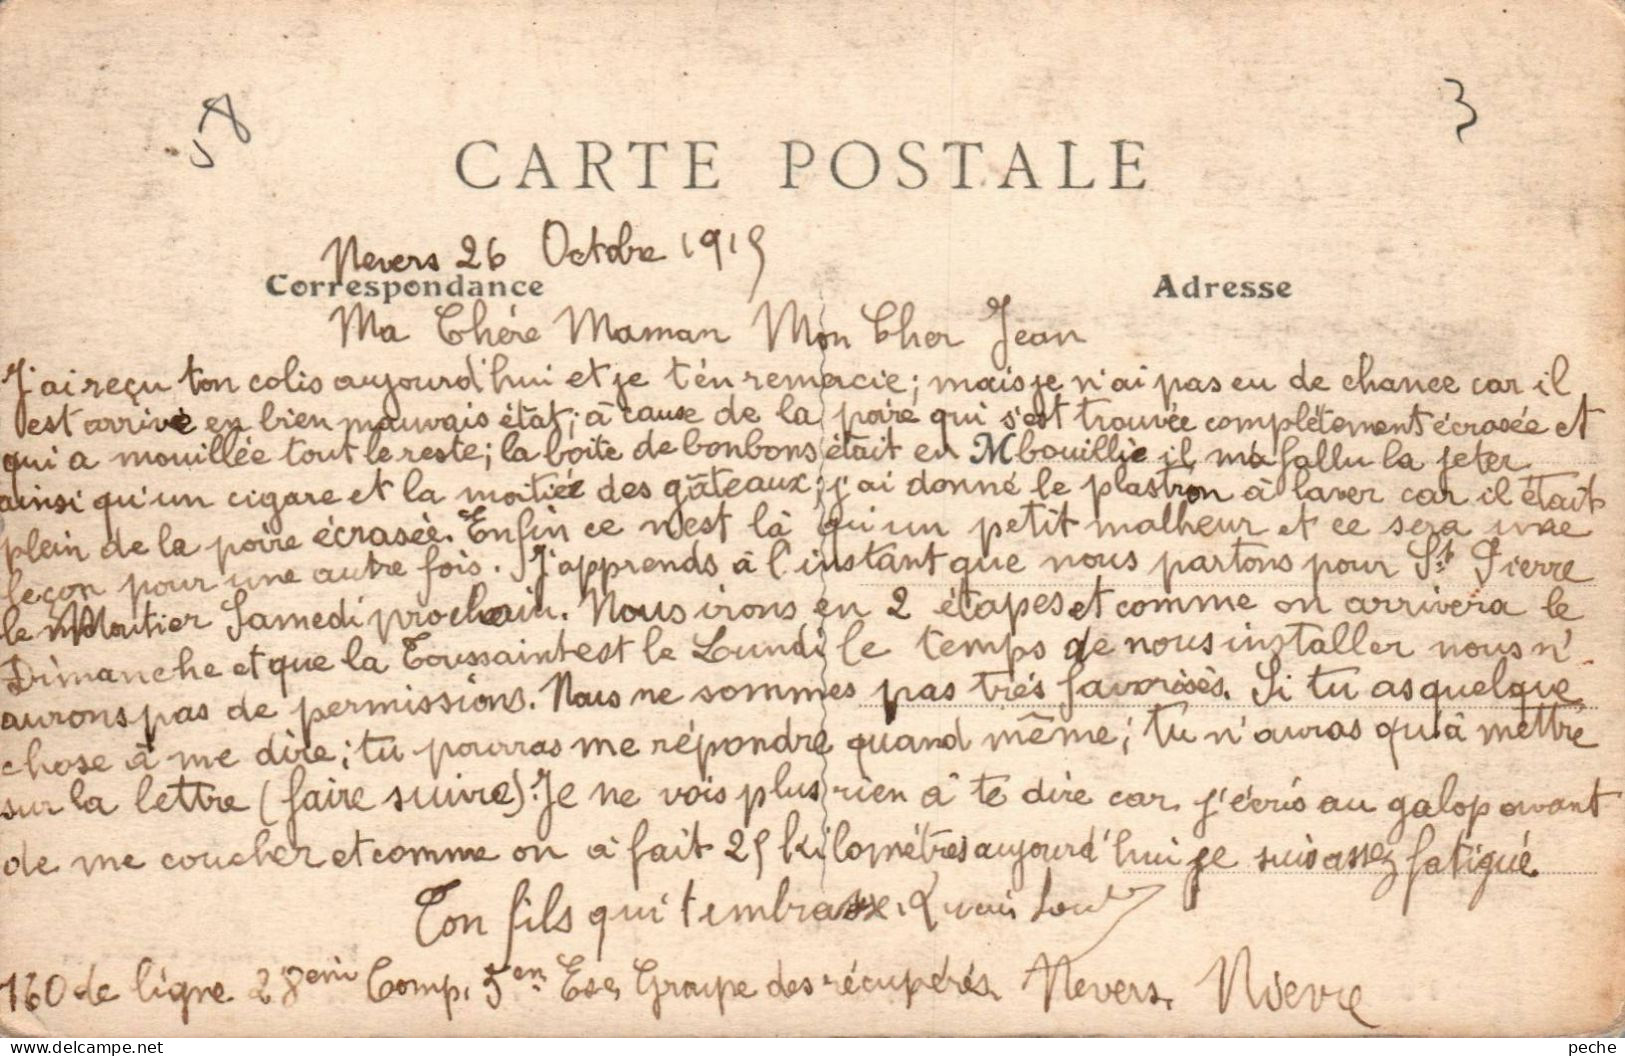 58
3
CARTE POSTALE
Nevers 26 Octobre 1915
Correspondance
Adresse
Ma Chére Maman Mon Cher Jean
J'ai reçu ton colis aujourd'hui et je t'en remercie; mais je n'ai pas eu de chance car il
est arrivé en bien mauvais état; à cause de la poire qui s'est trouvée complétement écrasée et
qui a mouillée tout le reste; la boite de bonbons était en bouillie il m'a fallu la jeter
ainsi qu'un cigare et la moitiée des gâteaux; j'ai donné le plastron à laver car il était
plein de la poire écrasée. Enfin ce n'est là qu'un petit malheur et ce sera une
leçon pour une autre fois. J'apprends à l'instant que nous partons pour St Pierre
le Moutier Samedi prochain. Nous irons en 2 étapes et comme on arrivera le
Dimanche et que la Toussaint est le Lundi le temps de nous installer nous n'
aurons pas de permissions. Nous ne sommes pas trés favorisés. Si tu as quelque
chose à me dire; tu pourras me répondre quand même; tu n'auras qu'à mettre
sur la lettre (faire suivre). Je ne vois plus rien à te dire car j'écris au galop avant
de me coucher et comme on a fait 25 kilométres aujourd'hui je suis assez fatigué
Ton fils qui t'embrasse.
160 de ligne 28eme Comp. 5em Ese, Groupe des récupérés. Nevers. Nievre
peche